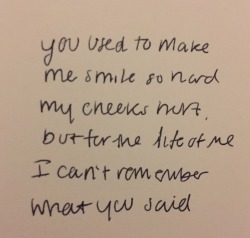 you used to make
me smile so hard
my cheeks hurt.
but for the life of me
I can't remember
what you said